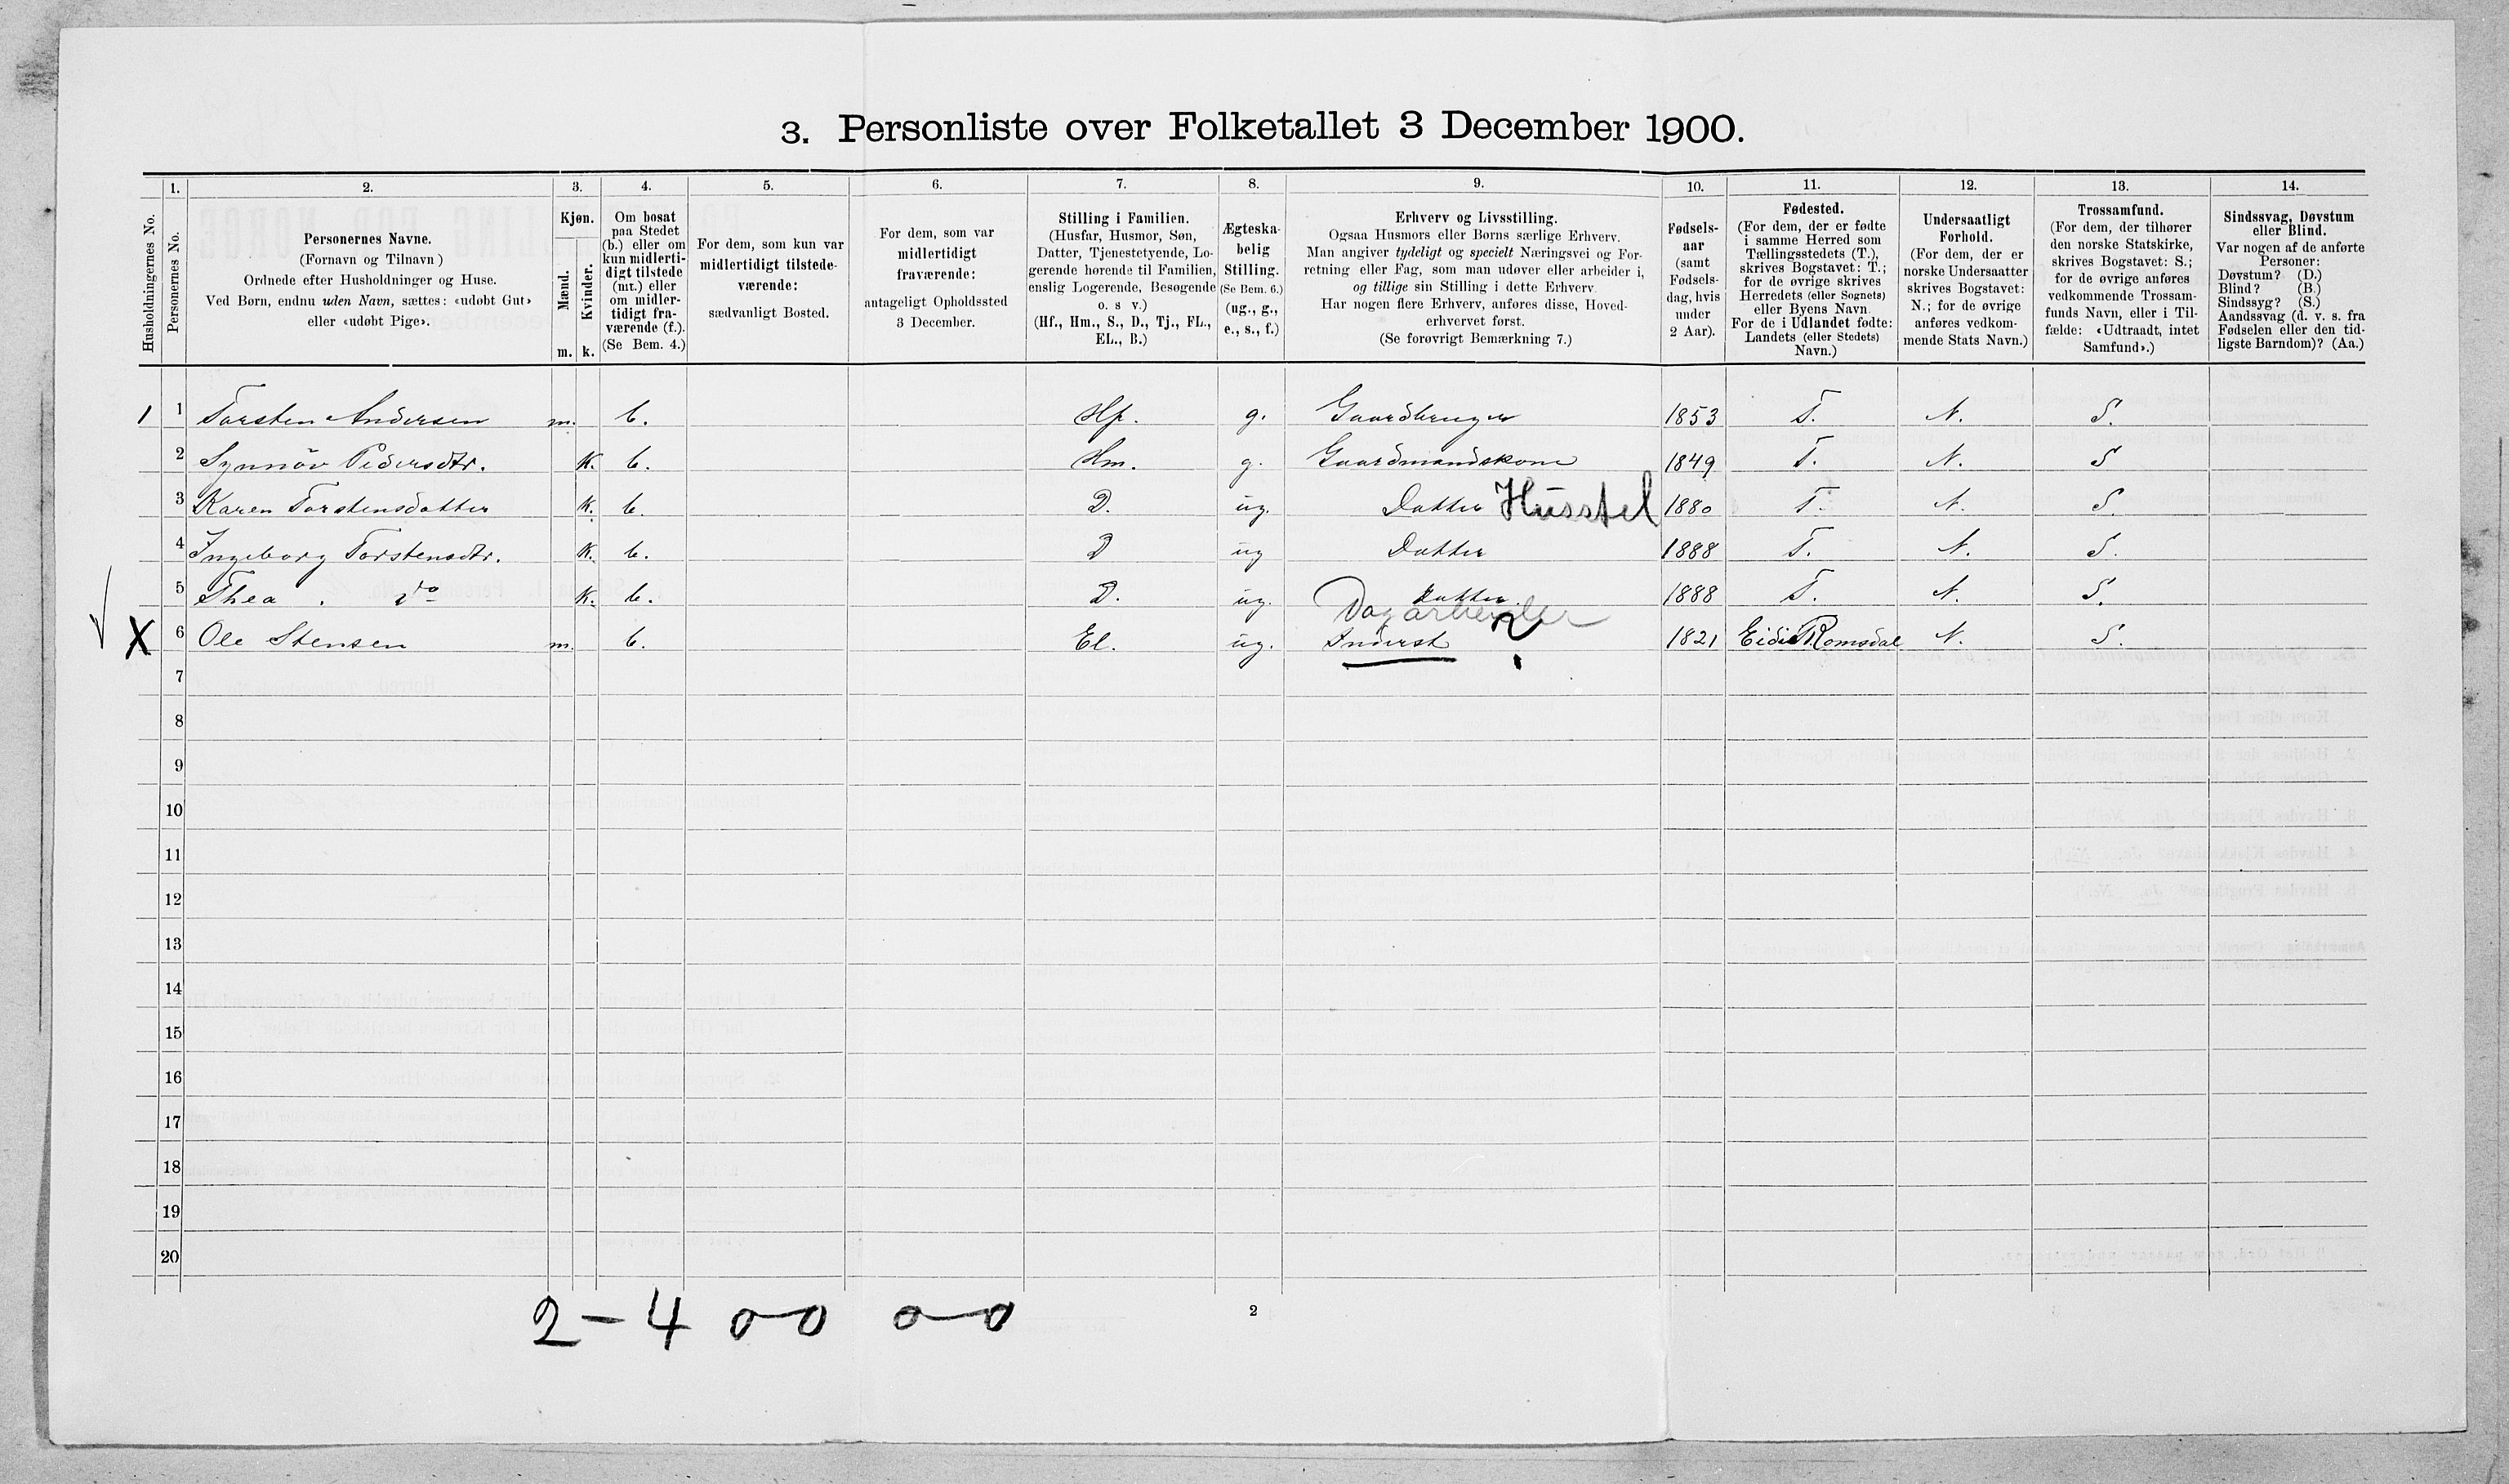 3. Personliste over Folketallet 3 December 1900.
1. 2. 3. 4. 5. 6. 7. 8. 9. 10. 11. 12. 13. 14.
Husholdningernes No.
Personernes No.
Personernes Navne.
(Fornavn og Tilnavn)
Ordnede efter Husholdninger og Huse.
Ved Børn, endnu uden Navn, sættes: «udøbt Gut»
eller «udøbt Pige».
Kjøn.
Mænd.
Kvinder.
m. k.
Om bosat
paa Stedet
(b.) eller om
kun midlerti-
digt tilstede
(mt.) eller
om midler-
tidigt fra-
værende (f.).
(Se Bem. 4.)
For dem, som kun var
midlertidigt tilstede-
værende:
sædvanligt Bosted.
For dem, som var
midlertidigt
fraværende:
antageligt Opholdssted
3 December.
Stilling i Familien.
(Husfar, Husmor, Søn,
Datter, Tjenestetyende, Lo-
gerende hørende til Familien,
enslig Logerende, Besøgende
o. s v.)
(Hf., Hm., S., D., Tj., FL.,
EL., B.)
Ægteska-
belig
Stilling.
(Se Bem. 6.)
(ug., g.,
e., s., f.)
Erhverv og Livsstilling.
Ogsaa Husmors eller Børns særlige Erhverv.
Man angiver tydeligt og specielt Næringsvei og For-
retning eller Fag, som man udøver eller arbeider i,
og tillige sin Stilling i dette Erhverv.
Har nogen flere Erhverv, anføres disse, Hoved-
erhvervet først.
(Se forøvrigt Bemærkning 7.)
Fødsels-
aar
(samt
Fødsels-
dag, hvis
under
2 Aar).
Fødested.
(For dem, der er fødte
i samme Herred som
Tællingsstedets (T.),
skrives Bogstavet: T.;
for de øvrige skrives
Herredets (eller Sognets)
eller Byens Navn.
For de i Udlandet fødte:
Landets (eller Stedets)
Navn.)
Undersaatligt
Forhold.
(For dem, der er
norske Undersaatter
skrives Bogstavet:
N.; for de øvrige
anføres vedkom-
mende Stats Navn.)
Trossamfund.
(For dem, der tilhører
den norske Statskirke,
skrives Bogstavet: S.;
for de øvrige anføres
vedkommende Trossam-
funds Navn, eller i Til-
fælde: «Udtraadt, intet
Samfund».)
Sindssvag, Døvstum
eller Blind.
Var nogen af de anførte
Personer:
Døvstum? (D.)
Blind? (B.)
Sindssyg? (S.)
Aandssvag (d. v. s. fra
Fødselen eller den tid-
ligste Barndom)? (Aa.)
1 1 Torsten Andersen m. b. Hf. g. Gaardbruger 1853 T. N. S.
2 Synnöv Pedersdtr. k. b. Hm. g. Gaardmandskone 1849 T. N. S
3 Karen Torstensdatter k. b. D. ug. Datter Husstel 1880 T. N. S.
4 Ingeborg Torstensdtr. k. b. D ug Datter 1888 T. N. S.
5 Thea . do k. b. D. ug. Datter. 1888 T. N. S.
Dagarbeider
X 6 Ole Stensen m. b. El. ug. Inderst ? 1821 Eidi Romsdal N. S.
7
8
9
10
11
12
13
14
15
16
17
18
19
20
2 - 4 0-0 0-0
2